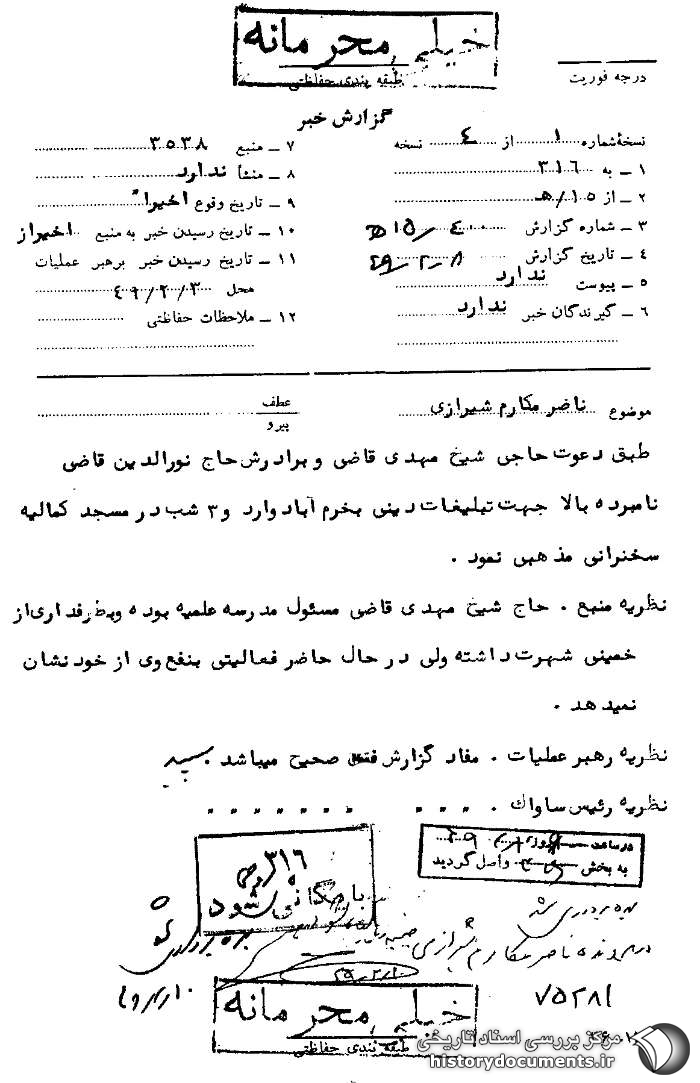 خیلی محرمانه
طبقه بندی حفاظتی
درجه فوریت
گزارش خبر
نسخه شماره ۱ از ٤ نسخه
۱ ـ به ۳۱٦
۲ ـ از ۱٥/هـ
۳ ـ شماره گزارش ٤۰۰/۱٥هـ
٤ ـ تاریخ گزارش ٤۹/۲/۸
٥ ـ پیوست ندارد
٦ ـ گیرندگان خبر ندارد
۷ ـ منبع ۳٥۳۸
۸ ـ منشأ ندارد
۹ ـ تاریخ وقوع اخیرا"
۱۰ ـ تاریخ رسیدن خبر به منبع اخیراز
۱۱ ـ تاریخ رسیدن خبر برهبر عملیات
محل ٤۹/۲/۳
۱۲ ـ ملاحظات حفاظتی
موضوع ناصر مکارم شیرازی
عطف
پیرو
طبق دعوت حاجی شیخ مهدی قاضی و برادرش حاج نورالدین قاضی
نامبرده بالا جهت تبلیغات دینی بخرم آباد وارد و ۳ شب در مسجد کمالیه
سخنرانی مذهبی نمود .
نظریه منبع . حاج شیخ مهدی قاضی مسئول مدرسه علمیه بوده وبطرفداری از
خمینی شهرت داشته ولی در حال حاضر فعالیتی بنفع وی از خود نشان
نمیدهد .
نظریه رهبر عملیات . مفاد گزارش فقط صحیح میباشد .
نظریه رئیس ساواک . . . . . . . . . . .
در ساعت روز
به بخش واصل گردید
۳۱٦
بایگانی شود
بهره برداری شد
در پرونده ناصر مکارم شیرازی
بهره برداری شد
۷٥۲۸۱
خیلی محرمانه
طبقه بندی حفاظتی
مرکز بررسی اسناد تاریخی
historydocuments.ir